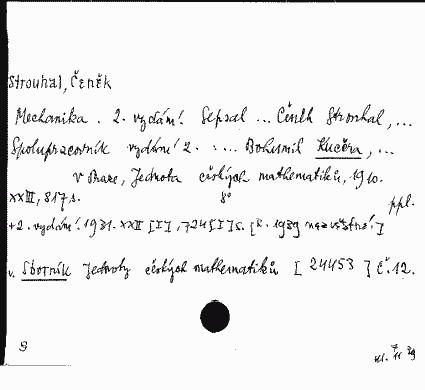 Strouhal, Čeněk
Mechanika. 2. vydání. Sepsal ... Čeněk Strouhal, ...
Spolupracovník vydání 2. : ... Bohumil Kučera, ...
v Praze, Jednota českých mathematiků, 1910.
XXIII, 817 s. 8° ppl.
+2. vydání. 1931. XXII [I], 724 [I] s. [R. 1939 nezvěstné.]
v. Sborník Jednoty českých mathematiků [24453] č. 12.